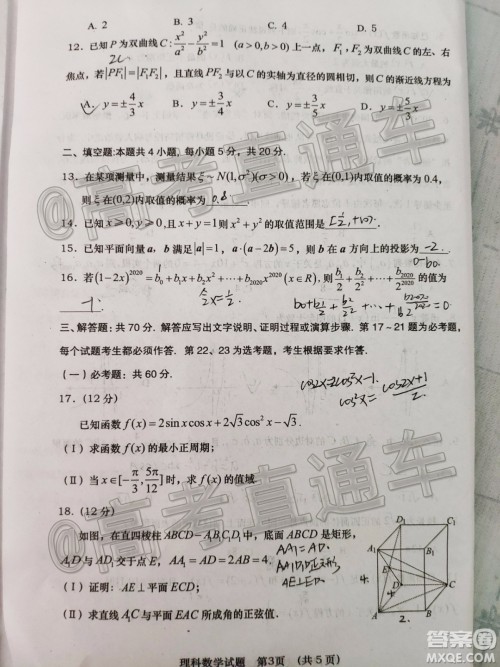 A. 2 B. 3 C. 4 D. 5
12. 已知P为双曲线C: x²/a² - y²/b² = 1 (a>0, b>0) 上一点，F₁，F₂为双曲线C的左、右
焦点，若|PF₁|=|F₁F₂|，且直线PF₂与以C的实轴为直径的圆相切，则C的渐近线方程为
A. y=±4/3 x B. y=±3/4 x C. y=±3/5 x D. y=±5/3 x
二、填空题:本题共4小题，每小题5分，共20分.
13. 在某项测量中，测量结果ξ~N(1,σ²)(σ>0)，若ξ在(0,1)内取值的概率为0.4，
则ξ在(0,2)内取值的概率为 0.8
14. 已知x≥0, y≥0，且x+y=1则x²+y²的取值范围是 [½,+∞).
15. 已知平面向量a，b满足|a|=1，a·(a-2b)=5，则b在a方向上的投影为 -2.
16. 若(1-2x)²⁰²⁰=b₀+b₁x+b₂x²+⋯+b₂₀₂₀x²⁰²⁰(x∈R)，则 b₁/2+b₂/2²+⋯+b₂₀₂₀/2²⁰²⁰ 的值为
-1.
令x=½.
三、解答题: 共70分. 解答应写出文字说明、证明过程或演算步骤. 第17~21题为必考题，
每个试题考生都必须作答. 第22、23为选考题，考生根据要求作答.
(一) 必考题: 共60分.
17. (12分)
已知函数f(x)=2sin x cos x+2√3cos²x-√3.
(Ⅰ) 求函数f(x)的最小正周期；
(Ⅱ) 当x∈[-π/3, 5π/12]时，求f(x)的值域.
18. (12分)
如图，在直四棱柱ABCD-A₁B₁C₁D₁中，底面ABCD是矩形，
A₁D与AD₁交于点E，AA₁=AD=2AB=4.
AA1=AD.
(Ⅰ) 证明: AE⊥平面ECD；
AE⊥ED.
(Ⅱ) 求直线A₁C与平面EAC所成角的正弦值.
D₁ C₁
A₁ B₁
E
D C
A B
4.
2.
@高考直通车
@高考直通车
@高考直通车
理科数学试题 第3页 (共5页)
作业帮
MXQE.COM